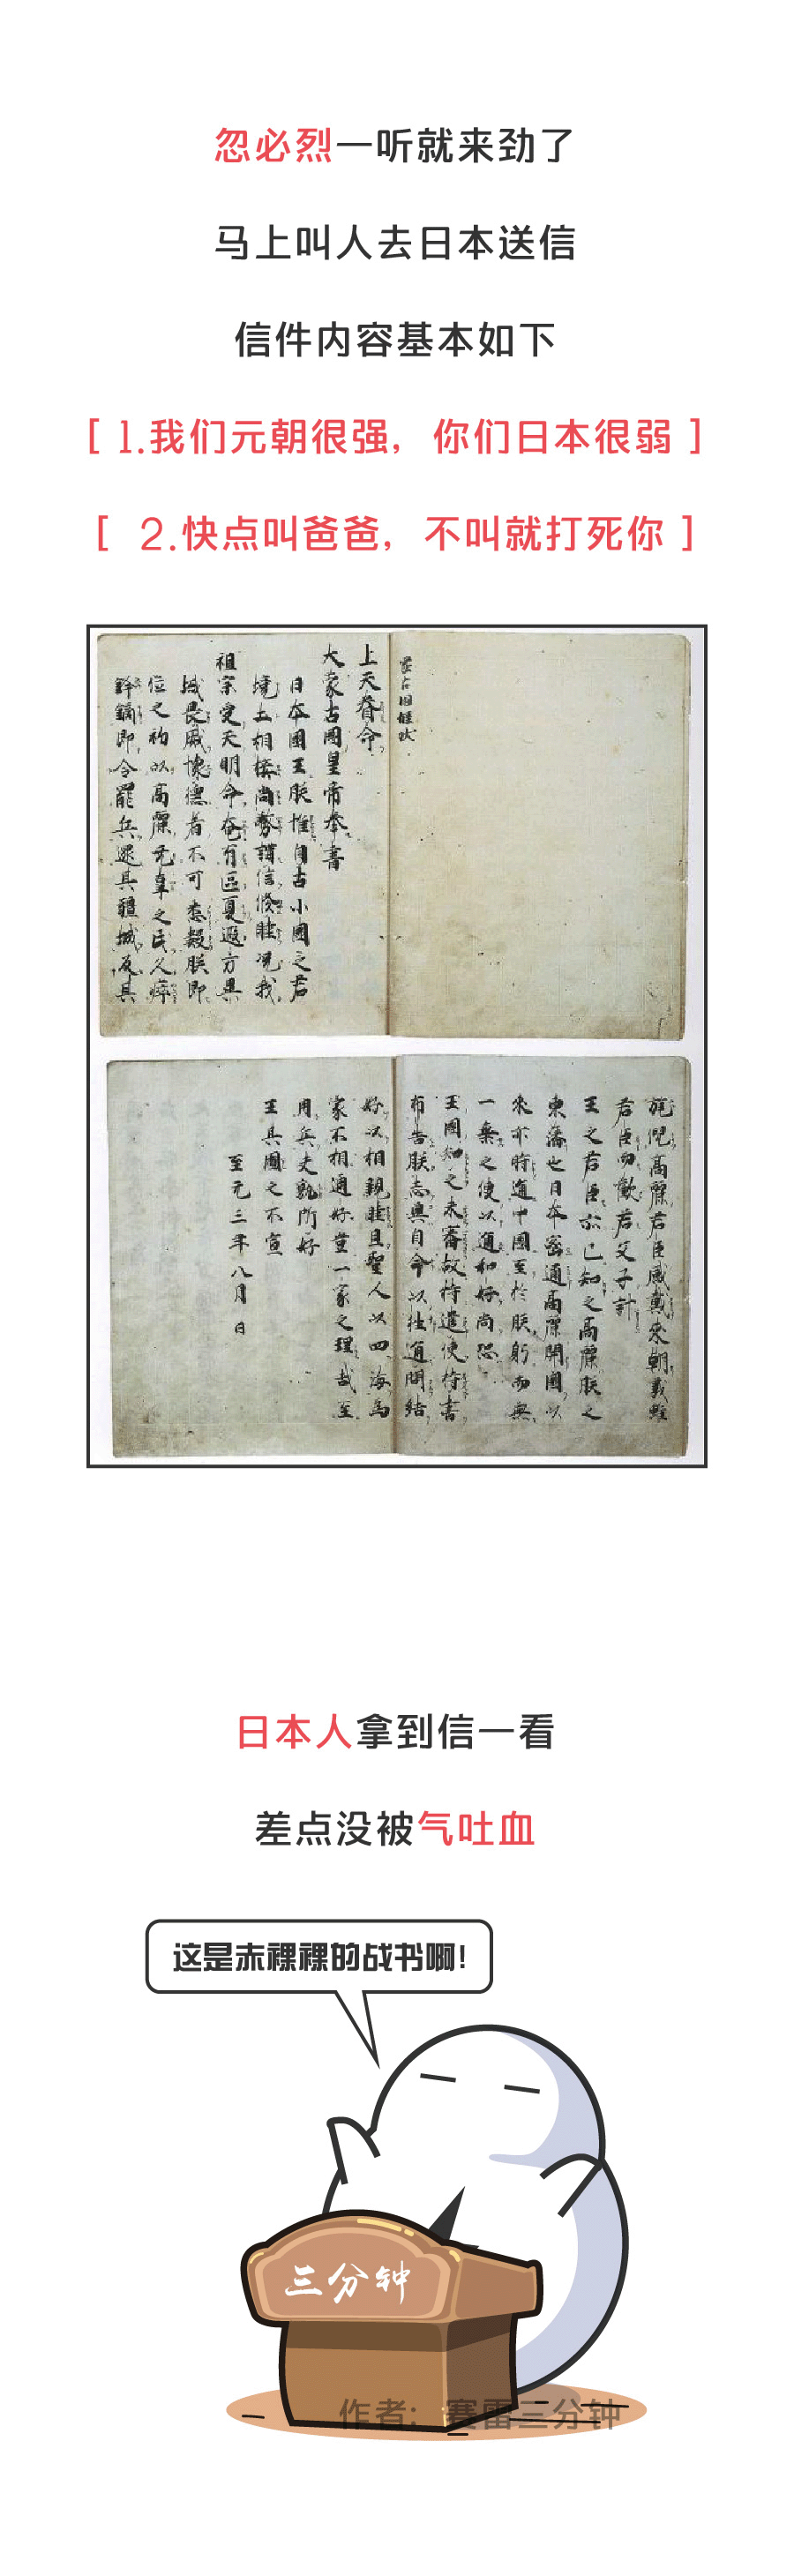 忽必烈一听就来劲了
马上叫人去日本送信
信件内容基本如下
[ 1.我们元朝很强，你们日本很弱 ]
[ 2.快点叫爸爸，不叫就打死你 ]
蒙古国牒状
上天眷命
大蒙古國皇帝奉書
日本國王朕惟自古小國之君
境土相接尚務講信修睦况我
祖宗受天明命奄有區夏遐方異
域畏威懷德者不可悉數朕即
位之初以高麗无辜之民久瘁
鋒鏑即令罷兵還其疆域反其
旄倪高麗君臣感戴來朝義雖
君臣而歡若父子計
王之君臣亦已知之高麗朕之
東藩也日本密邇高麗開國以
來亦時通中國至於朕躬而無
一乘之使以通和好尚恐
王國知之未審故特遣使持書
布告朕志冀自今以往通問結
好以相親睦且聖人以四海為
家不相通好豈一家之理哉至
用兵夫孰所好
王其圖之不宣
至元三年八月 日
日本人拿到信一看
差点没被气吐血
这是赤裸裸的战书啊!
三分钟
作者：赛雷三分钟